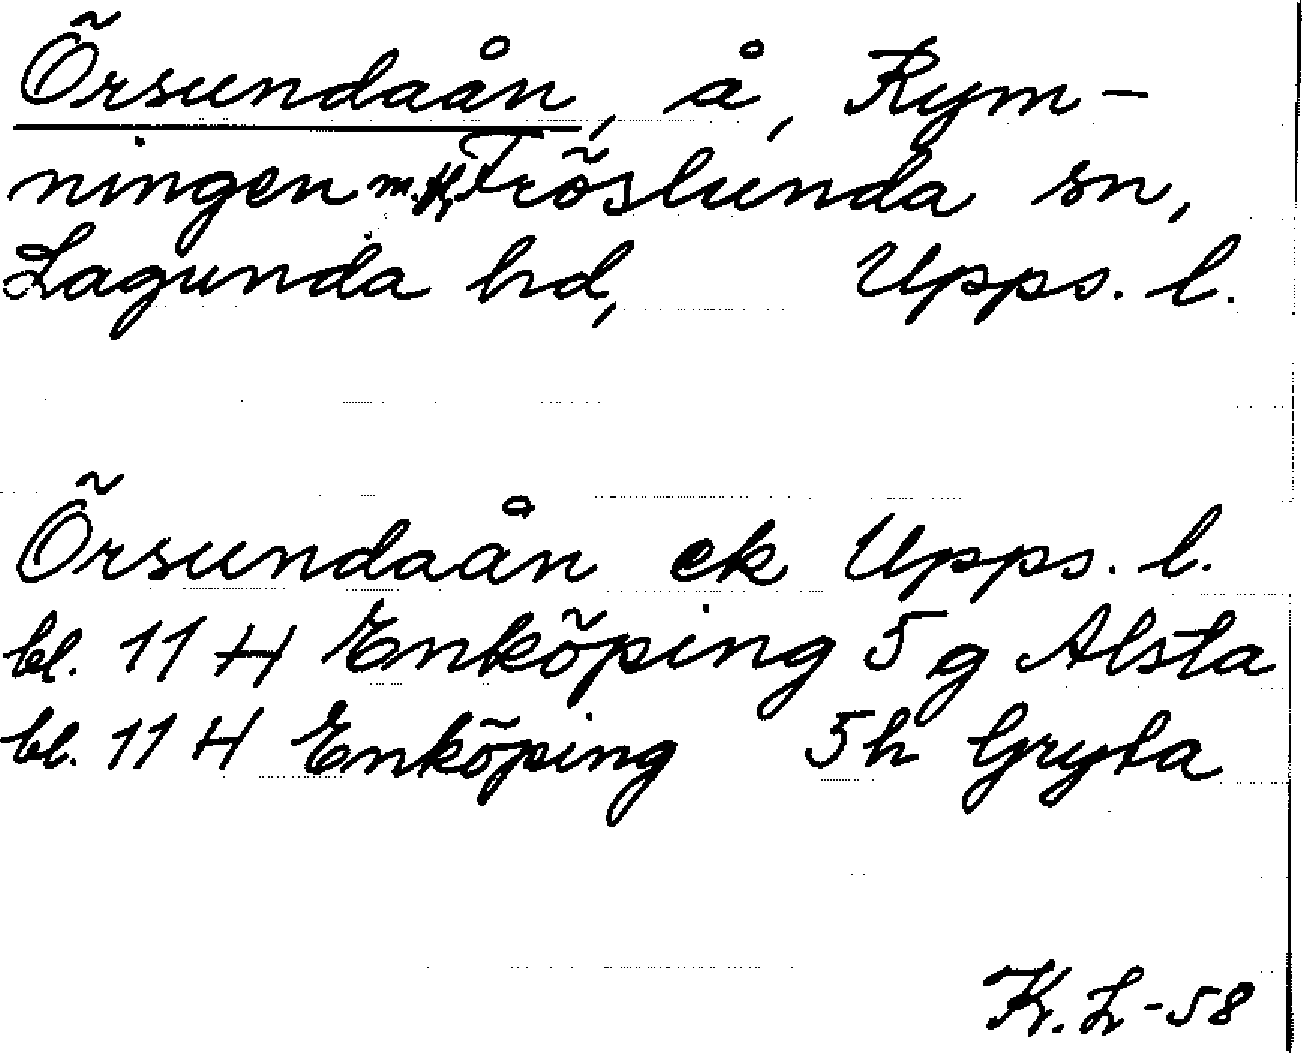 Örsundaån, å, Rym-
ningen m.fl, Fröslunda sn,
Lagunda hd, Upps. l.
Örsundaån ek Upps. l.
bl. 11 H Enköping 5 g Alsta
bl. 11 H Enköping 5h Gryta
K. L -58